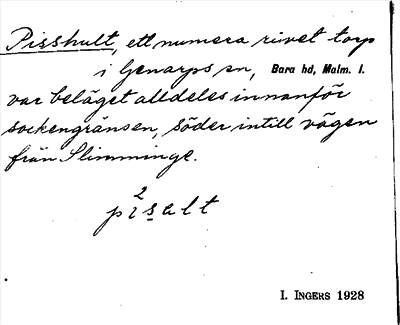 Pisshult, ett numera rivet torp
i Genarps sn, Bara hd, Malm. l.
var beläget alldeles innanför
sockengränsen, söder intill vägen
från Slimminge.
2
pisalt
I. INGERS 1928